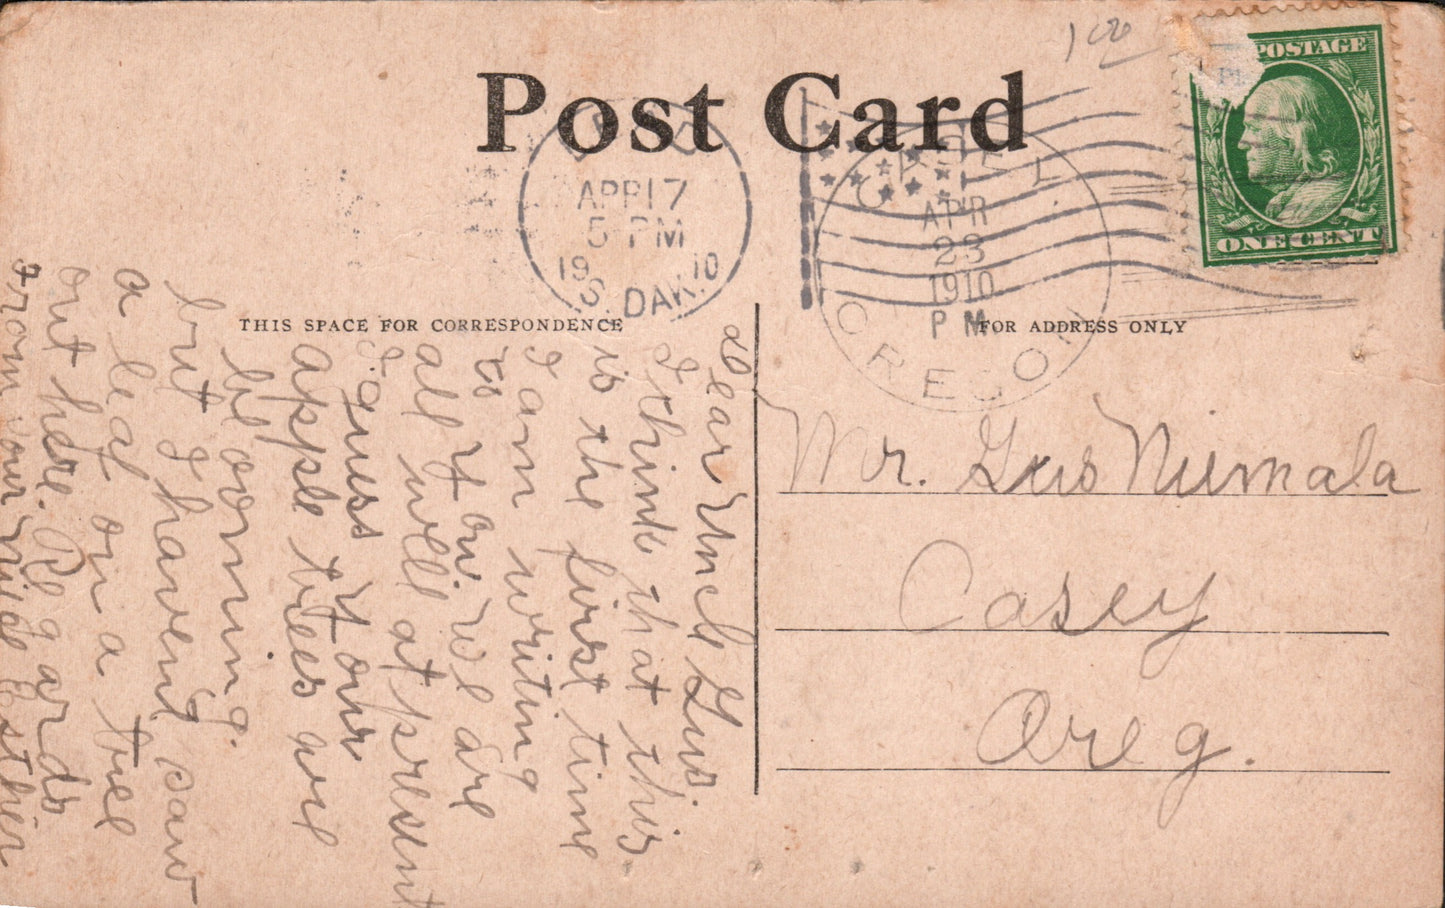 100
Post Card
POSTAGE
ONE CENT
LEAD
APR 17
5 PM
1910
S. DAK.
CASEY
APR
23
1910
P M
OREGON
THIS SPACE FOR CORRESPONDENCE
FOR ADDRESS ONLY
Mr. Gus Niemala
Casey
Oreg.
Dear Uncle Gus.
I think that this
is the first time
I am writing
to you we are
all well at present
I guess your
apple trees are
blooming.
but I havent saw
a leaf on a tree
out here. Regards
from your niece Esther